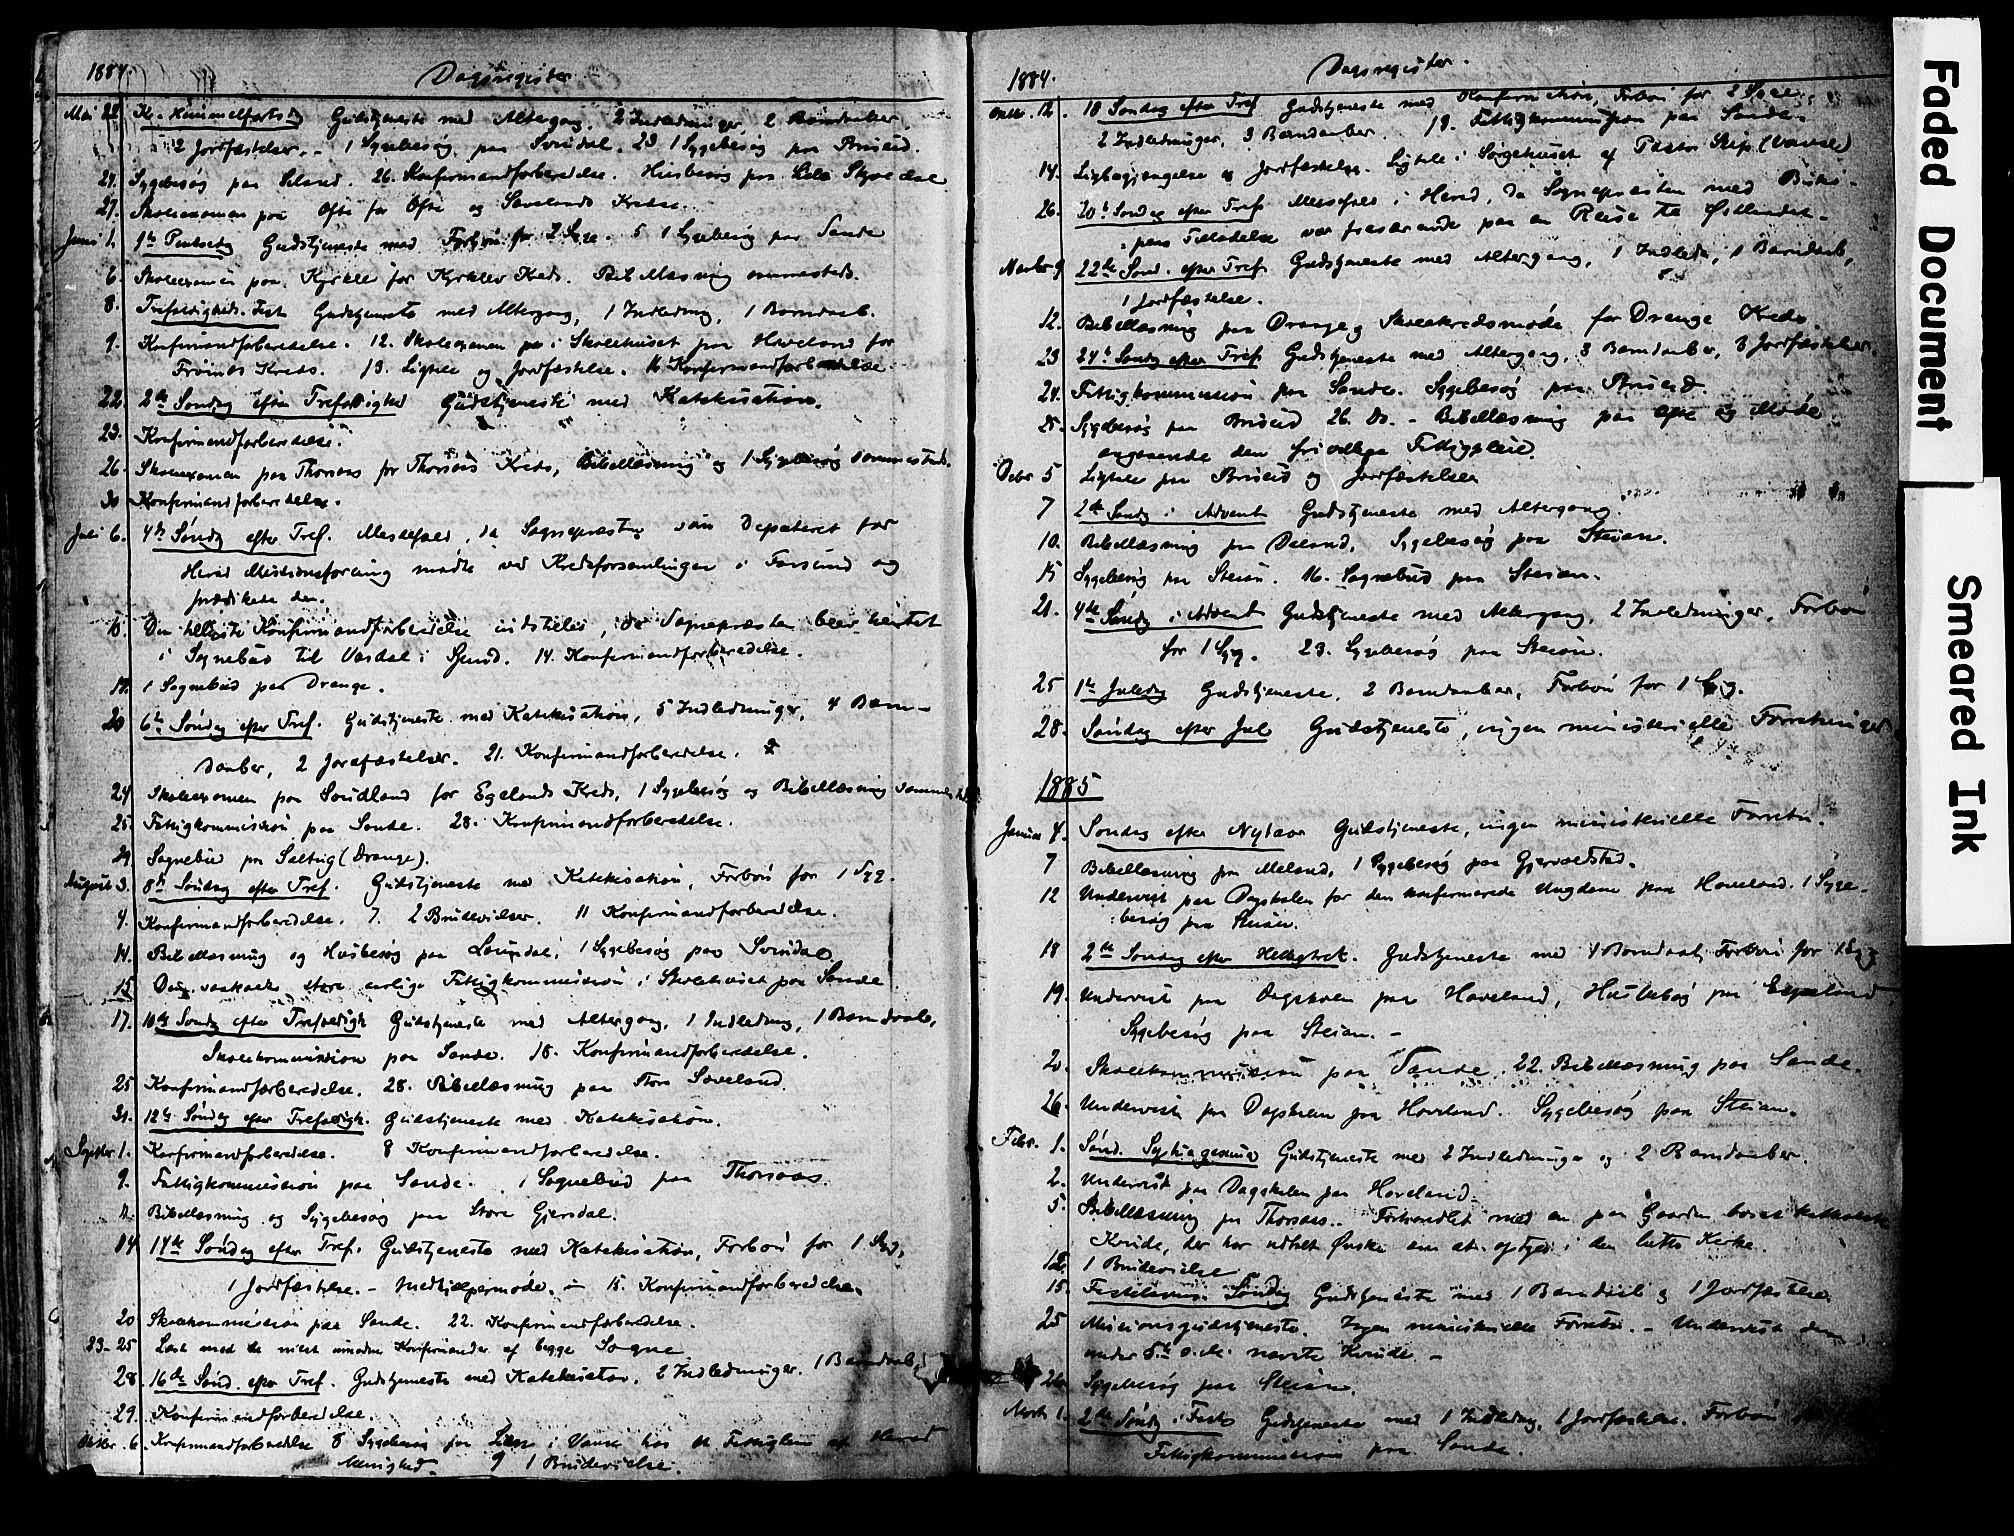 1884. Dagsregister
Mai 22. Kr. Himmelfartsdg Gudstjeneste med Altergang. 2 Indledninger, 2 Barndaaber,
2 Jordfæstelser. - 1 Sygebesøg paa Svindal. 23 1 Sygebesøg paa Briseid.
24. Sygebesøg paa Eland. 26. Konfirmandforberedelse. Husbesøg paa Lille
27. Skoleexamen paa Ofte for Ofte og Sæveland Kreds.
Juni 1. 1ste Pintsedg Gudstjeneste med Forbøn for 2 Syge. 5 1 Sygebesøg paa Sande
6. Skoleexamen paa Kjrkle for Kyrklev Kreds. Bibellæsning sammesteds.
8. Trefoldigheds-Fest Gudstjeneste med Altergang, 1 Indledning, 1 Barndaab.
9. Konfirmandforberedelse. 12. Skoleexamen i Skolehuset paa Haveland for
Frøines Kreds. 13. Ligtale og Jordfæstelse. 16 Konfirmandforberedelse.
22 2den Søndag efter Trefoldighed Gudstjeneste med Katekisation.
23. Konfirmandforberedelse.
26. Skoleexamen paa Thorsaas for Thorsaas Kreds, Bibellæsning og 1 Sygebesøg sammesteds.
30 Konfirmandforberedelse.
Juli 6. 4de Søndg efter Tref. Messefald, da Sognepræsten som Deputeret for
Herad Missionsforening mødte ved Kredsforsamlingen i Farsund og
prædikede der.
Konfirmandforberedelse indstilles, da Sognepræsten blev hentet
i Sognebud til Vasdal i Spind. 14. Konfirmandforberedelse.
17. 1 Sognebud paa Drange.
20 6te Søndag efter Tref. Gudstjeneste med Katekisation, 5 Indledninger, 4 Barn-
daaber, 2 Jordfæstelser. 21. Konfirmandforberedelse.
24 Skoleexamen paa Sandland for Egelands Kreds, 1 Sygebesøg og Bibellæsning sammesteds
25. Fattigkommission paa Sande. 28. Konfirmandforberedelse.
29 Sognebud paa (Drange).
August 3. 8de Søndag efter Tref. Gudstjeneste med Katekisation, Forbøn for 1 Syg.
4. Konfirmandforberedelse. 7. 2 Brudevielser. 11 Konfirmandforberedelse.
14. Bibellæsning og Husbesøg paa Laundal, 1 Sygebesøg paa Svindal.
15 store aarlige Fattigkommission i Skolehuset paa Sande
17. 10de Søndg efter Trefoldigh Gudstjeneste med Altergang, 1 Indledning, 1 Barndaab,
Skolekommission paa Sande. 18. Konfirmandforberedelse.
25 Konfirmandforberedelse. 28. Bibellæsning paa Store Sæveland.
31. 12te Søndag efter Trefoldigh. Gudstjeneste med Katekisation.
Septbr 1. Konfirmandforberedelse. 8 Konfirmandforberedelse.
9. Fattigkommission paa Sande. 1 Sognebud paa Thorsaas
11. Bibellæsning og Sygebesøg paa Store Gjersdal.
14 14de Søndag efter Tref. Gudstjeneste med Katekisation, Forbøn for 1 Syg,
1 Jordfæstelse. - Medhjælpermøde. - 15. Konfirmandforberedelse.
20 Skolekommission paa Sande. 22. Konfirmandforberedelse.
23-25 Læst med de mest umodne Konfirmander af begge Sogne
28. 16de Sønd. efter Tref. Gudstjeneste med Katekisation, 2 Indledninger. 1 Barndaab.
29. Konfirmandforberedelse.
Oktbr. 6. Konfirmandforberedelse 8 Sygebesøg paa i Vanse hos et Fattiglem af Herad
Menighed. 9 1 Brudevielse.
1884. Dagsregister.
Oktbr. 12. 18 Søndag efter Tref Gudstjeneste med Konfirmation, Forbøn for 2 Syge.
2 Indledninger, 3 Barndaaber. 13. Fattigkommission paa Sande.
14. Ligbegjængelse og Jordfæstelse. Ligtale i Sørgehuset af Pastor Skip (Vanse)
26. 20de Søndag efter Tref Messefald i Herad, da Sognepræsten med Bisko-
pens Tilladelse var fraværende paa en Reise til Østlandet.
Novbr 9 22de Sønd. efter Tref Gudstjeneste med Altergang, 1 Indledn., 1 Barndaab,
1 Jordfæstelse.
12. Bibellæsning paa Drange og Skolekredsmøde for Drange Kreds.
23 24de Søndg efter Tref Gudstjeneste med Altergang, 3 Barndaaber, 3 Jordfæstelser.
24. Fattigkommission paa Sande. Sygebesøg paa Briseid.
25. Sygebesøg paa Briseid 26. Do. - Bibellæsning paa Ofte og Møde
angaaende den frivillige Fattigpleie.
Decbr 5 Ligtale paa Briseid og Jordfæstelse
7 2den Søndg i Advent Gudstjeneste med Altergang.
10. Bibellæsning paa Daland, Sygebesøg paa Steian.
15 Sygebesøg paa Steian. 16. Sognebud paa Steian.
21. 4de Søndg i Advent Gudstjeneste med Altergang, 2 Indledninger, Forbøn
for 1 Syg. 23. Sygebesøg paa Steian.
25 1ste Juledg Gudstjeneste, 2 Barndaaber, Forbøn for 1 Syg.
28. Søndag efter Jul Gudstjeneste, ingen ministerielle Forretninger
1885
Januar 4. Søndag efter Nytaar Gudstjeneste, ingen ministerielle Forretn.
7 Bibellæsning paa Meland, 1 Sygebesøg paa Gjervoldstad.
12 Undervist paa Dagskolen for den konfirmerede Ungdom paa Haveland. 1 Syge-
besøg paa Steian.
18 2den Søndag efter Helligtrek. Gudstjeneste med 1 Barndaab, Forbøn for 1 Syg
19. Undervist paa Dagskolen paa Haveland, Husbesøg paa Egeland
Sygebesøg paa Steian. -
20. Skolekommission paa Sande. 22. Bibellæsning paa Sande.
26. Undervist paa Dagskolen paa Haveland. Sygebesøg paa Steian.
Febr. 1. Sønd. Septuagesima Gudstjeneste med 2 Indledninger og 2 Barndaaber.
2. Undervist paa Dagskolen paa Haveland.
5. Bibellæsning paa Thorsaas. Forhandlet med en paa Gaarden boende katholsk
Kvinde, der har udtalt Ønske om at optages i den luthe Kirke.
12. 1 Brudevielse
15. Fastelavns Søndag Gudstjeneste med 1 Barndaab og 1 Jordfæstelse.
25 Missionsgudstjeneste. Ingen ministerielle Forretn. - Undervist den
under 5te d.M. nævnte Kvinde -
26. Sygebesøg paa Steian.
Marts 1. 2den Søndg i Faste Gudstjeneste med 1 Indledning, 1 Jordfæstelse. Forbøn
Fattigkommission paa Sande.
Faded Document
Smeared Ink